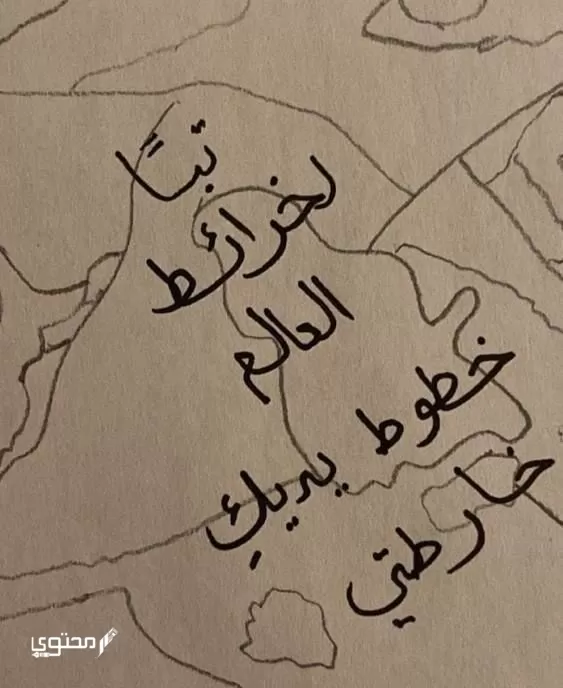 تبًا
لخرائط
العالم
خطوط يديكِ
خارطتي
محتوى